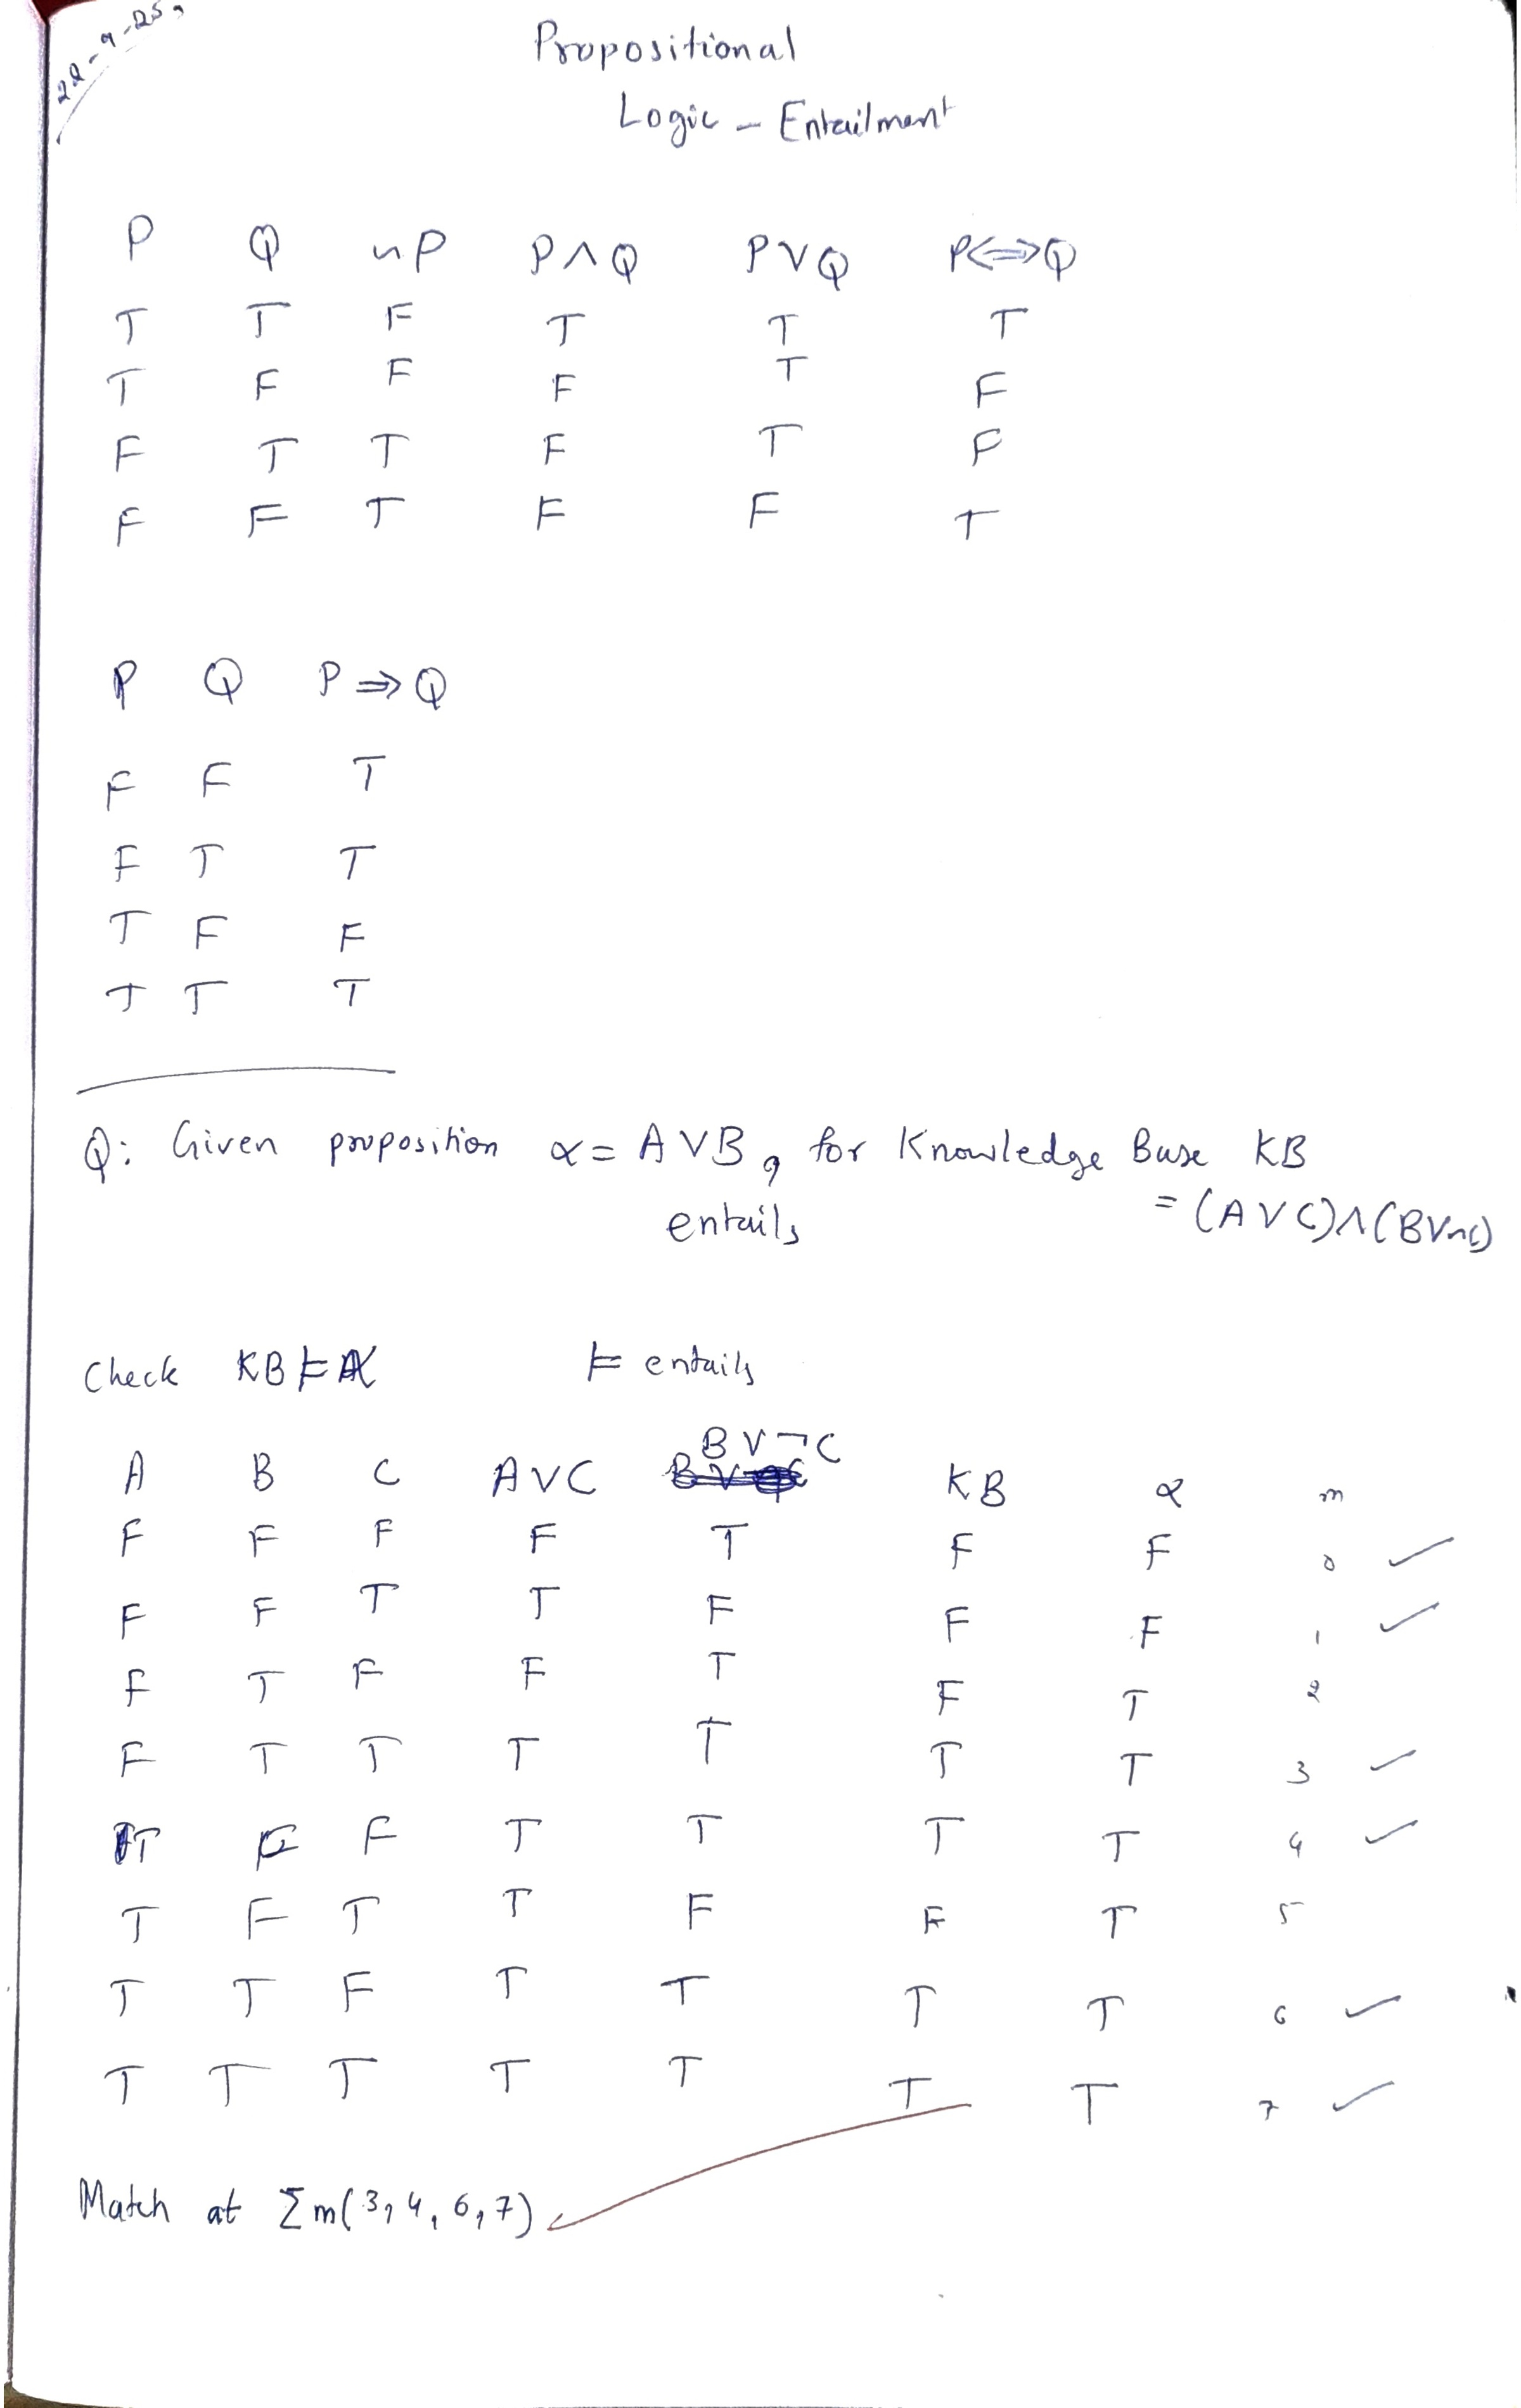 22-9-25,
Propositional
Logic - Entailment
P Q ~P P∧Q P∨Q P⇔Q
T T F T T T
T F F F T F
F T T F T F
F F T F F T
P Q P ⇒ Q
F F T
F T T
T F F
T T T
Q: Given proposition α = A∨B, for Knowledge Base KB
entails = (A∨C)∧(B∨~C)
Check KB ⊨ α ⊨ entails
A B C A∨C B∨¬C KB α m
F F F F T F F 0 ✓
F F T T F F F 1 ✓
F T F F T F T 2
F T T T T T T 3 ✓
T F F T T T T 4 ✓
T F T T F F T 5
T T F T T T T 6 ✓
T T T T T T T 7 ✓
Match at Σm(3, 4, 6, 7)